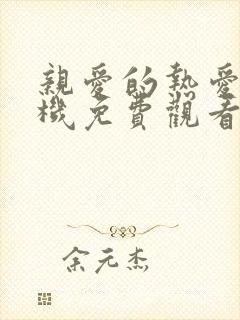 親愛的熱愛
機免費觀看
余元杰